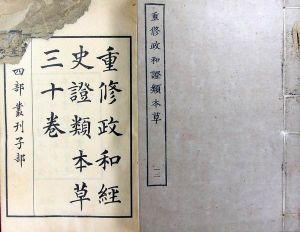 重修政和證類本草
重修政和經
史證類本草
三十卷
四部叢刊子部